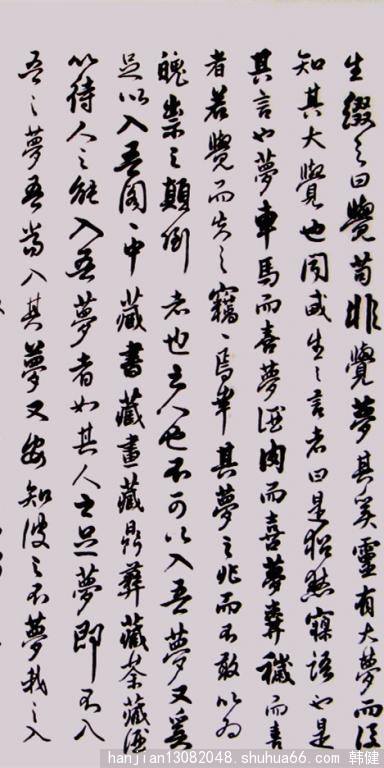 生綴之曰覺苟非覺夢其奚靈有大夢而後
知其大覺也周或生之言者曰是猶愁寐語也是
其言也夢車馬而喜夢酒肉而喜夢糞穢而喜
者若覺而失之竊竊焉幸其夢之兆而不敢以為
魂祟之顛倒者也之人也不可以入吾夢又奚
足以入吾閣閣中藏書藏畫藏鼎彝藏茶藏酒
以待人之能入吾夢者如其人之足夢即不入
吾之夢吾當入其夢又安知彼之不夢我之入
hanjian13082048.shuhua66.com 韩健